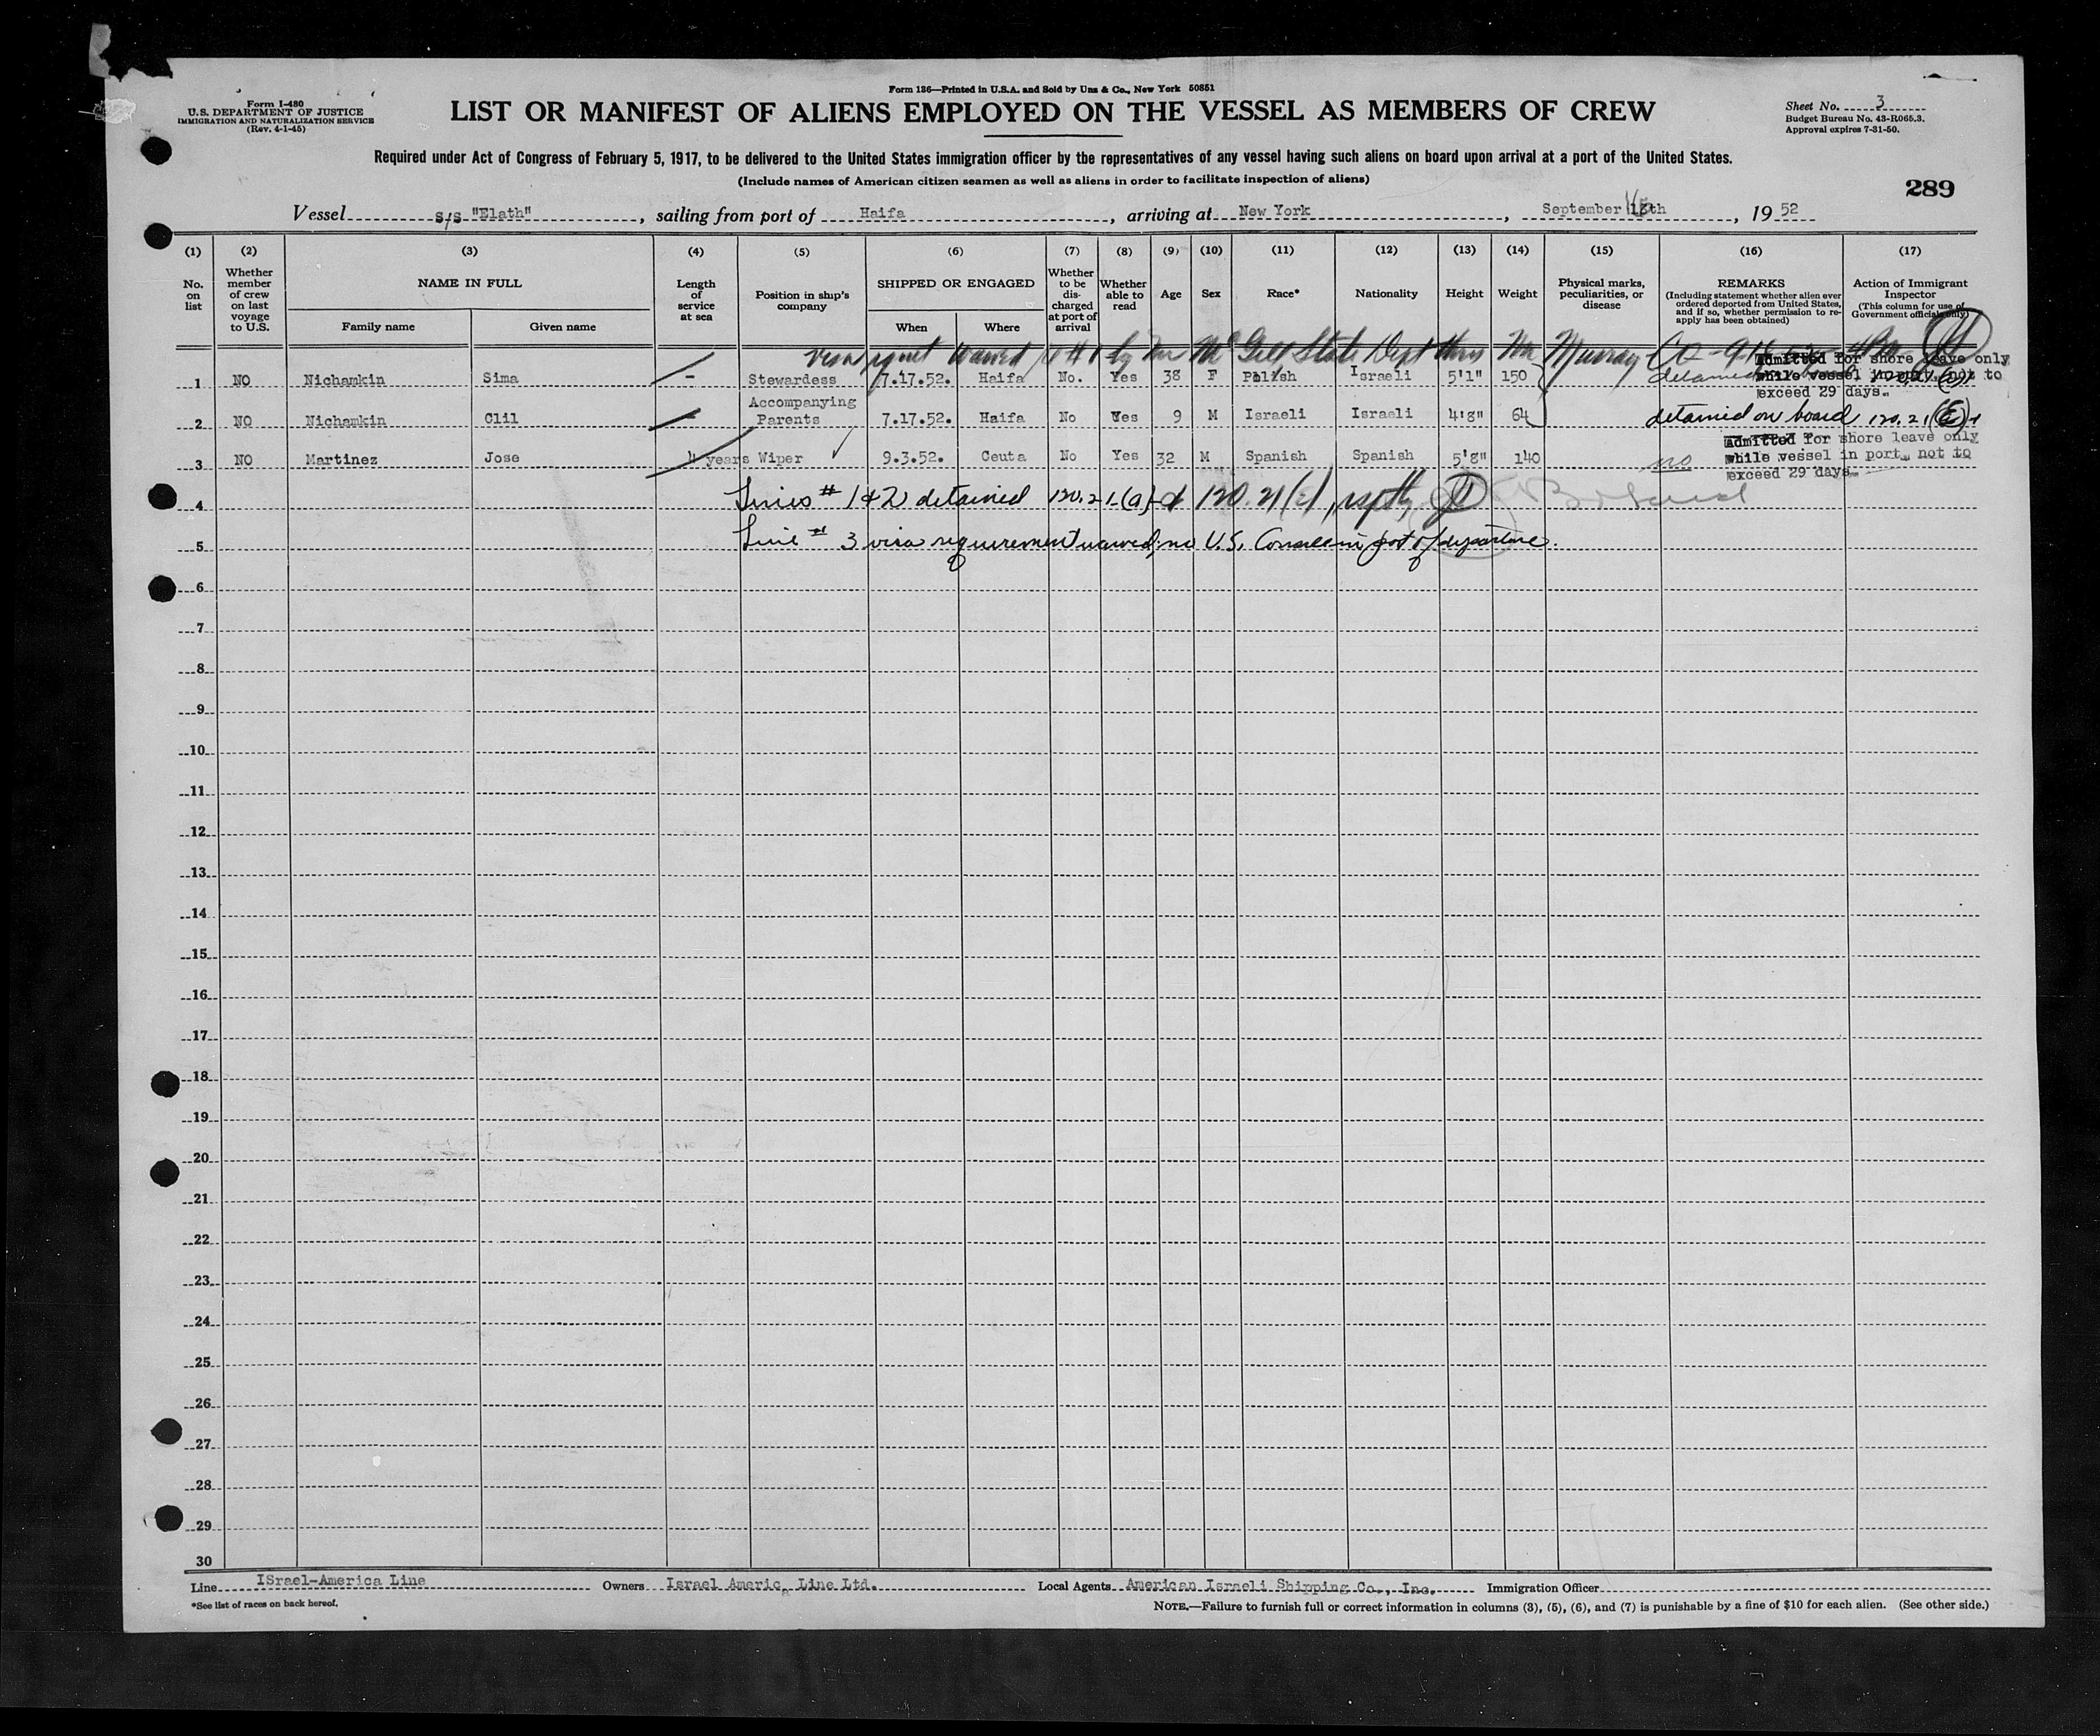 Form I-480
U.S. DEPARTMENT OF JUSTICE
IMMIGRATION AND NATURALIZATION SERVICE
(Rev. 4-1-45)
Form 136—Printed in U.S.A. and Sold by Unz & Co., New York 50851
LIST OR MANIFEST OF ALIENS EMPLOYED ON THE VESSEL AS MEMBERS OF CREW
Sheet No. 3
Budget Bureau No. 43-R065.3.
Approval expires 7-31-50.
Required under Act of Congress of February 5, 1917, to be delivered to the United States immigration officer by the representatives of any vessel having such aliens on board upon arrival at a port of the United States.
(Include names of American citizen seamen as well as aliens in order to facilitate inspection of aliens)
289
Vessel s/s "Elath", sailing from port of Haifa, arriving at New York, September 16th, 19 52
(1) (2) (3) (4) (5) (6) (7) (8) (9) (10) (11) (12) (13) (14) (15) (16) (17)
No. on list
Whether member of crew on last voyage to U.S.
NAME IN FULL
Family name
Given name
Length of service at sea
Position in ship's company
SHIPPED OR ENGAGED
When
Where
Whether to be discharged at port of arrival
Whether able to read
Age
Sex
Race*
Nationality
Height
Weight
Physical marks, peculiarities, or disease
REMARKS
(Including statement whether alien ever ordered deported from United States, and if so, whether permission to reapply has been obtained)
Action of Immigrant Inspector
(This column for use of Government officials only)
visa waived #1 by Mr McGill State Dept thru Mr Murray CO
1 NO Nichamkin Sima - Stewardess 7.17.52. Haifa No. Yes 38 F Polish Israeli 5'1" 150
Admitted for shore leave only
while vessel in port, not to
exceed 29 days.
detained
2 NO Nichamkin Clil - Accompanying Parents 7.17.52. Haifa No Yes 9 M Israeli Israeli 4'8" 64 detained on board 120.21(E)
3 NO Martinez Jose 4 years Wiper 9.3.52. Ceuta No Yes 32 M Spanish Spanish 5'8" 140 no
Admitted for shore leave only
while vessel in port, not to
exceed 29 days.
4 Lines # 1 & 2 detained 120.21(a) & 120.21(E),
5 Line # 3 visa requirement waived, no U.S. Consul in port of departure.
6
7
8
9
10
11
12
13
14
15
16
17
18
19
20
21
22
23
24
25
26
27
28
29
30
Line ISrael-America Line Owners Israel America Line Ltd. Local Agents American Israeli Shipping Co., Inc. Immigration Officer
*See list of races on back hereof.
NOTE.—Failure to furnish full or correct information in columns (3), (5), (6), and (7) is punishable by a fine of $10 for each alien. (See other side.)